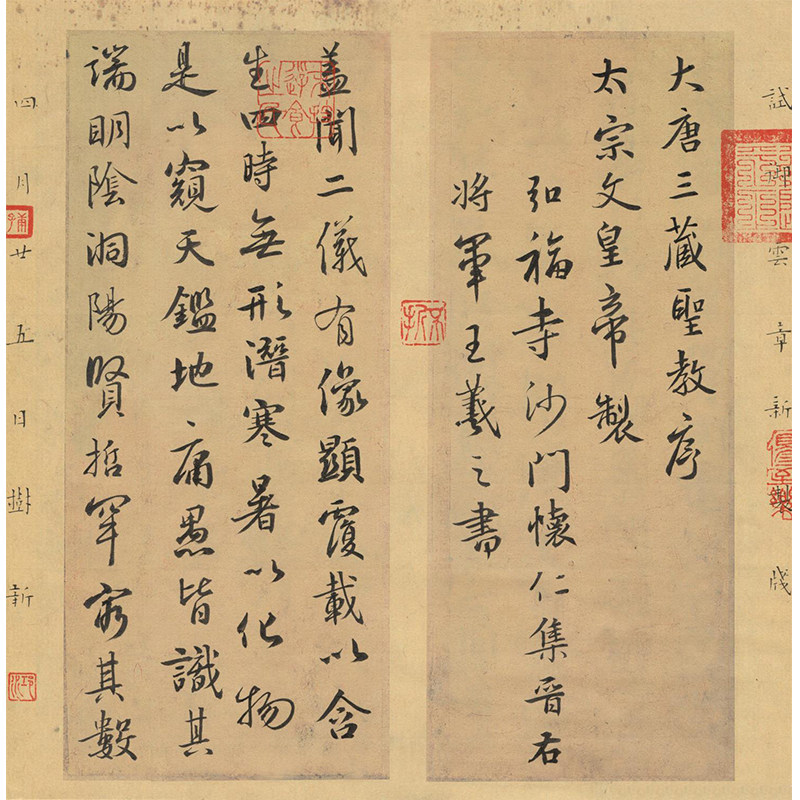 試雲章新製牋
大唐三藏聖教序
太宗文皇帝製
弘福寺沙門懷仁集晉右
將軍王羲之書
蓋聞二儀有像顯覆載以含
生四時無形潛寒暑以化物
是以窺天鑑地庸愚皆識其
端明陰洞陽賢哲罕窮其數
四月廿五日樹新